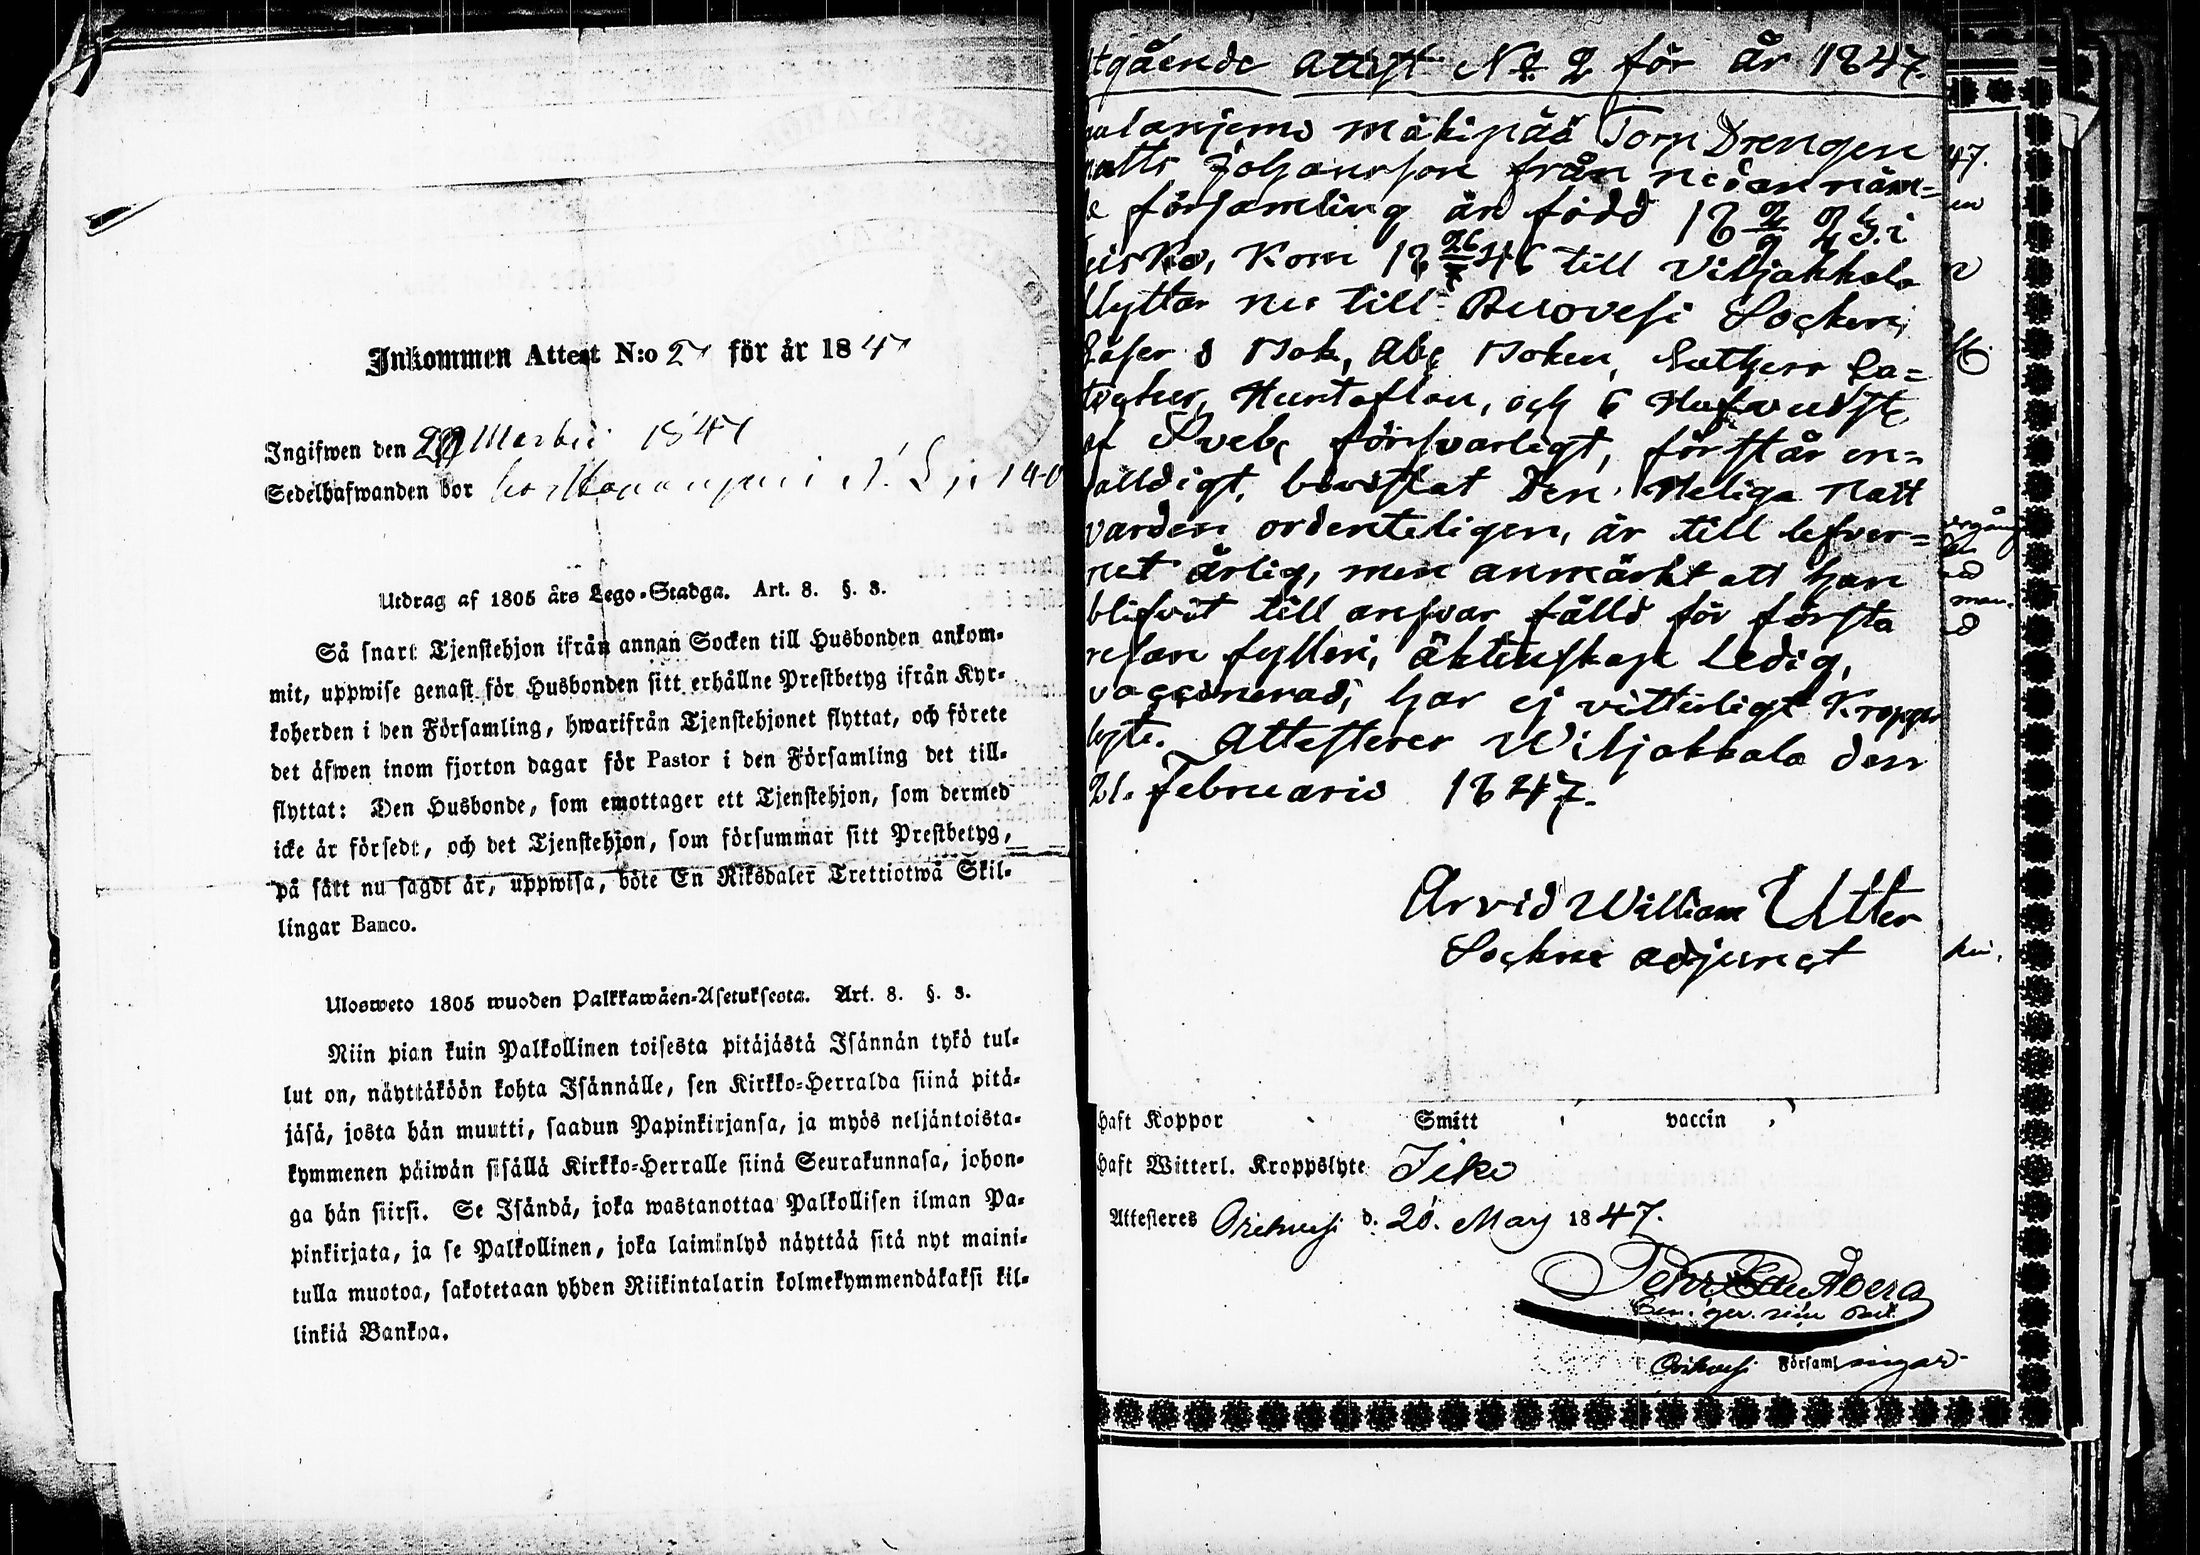 Inkommen Attest N:o 2 för år 184
Ingifwen den Martii 184
Sedelhafwanden bor
Utdrag af 1805 års Lego-Stadga. Art. 8. §. 3.
Så snart Tjenstehjon ifrån annan Socken till Husbonden ankom-
mit, uppwise genast för Husbonden sitt erhållne Prestbetyg ifrån Kyr-
koherden i den Församling, hwarifrån Tjenstehjonet flyttat, och förete
det äfwen inom fjorton dagar för Pastor i den Församling det till-
flyttat: Den Husbonde, som emottager ett Tjenstehjon, som dermed
icke är försedt, och det Tjenstehjon, som försummar sitt Prestbetyg,
på sätt nu sagdt är, uppwisa, böte En Riksdaler Trettiotwå Skil-
lingar Banco.
Ulosweto 1805 wuoden Palkkawäen-Asetuksesta. Art. 8. §. 3.
Niin pian kuin Palkollinen toisesta pitäjästä Isännän tykö tul-
lut on, näyttäköön kohta Isännälle, sen Kirkko-Herralda siinä pitä-
jäsä, josta hän muutti, saadun Papinkirjansa, ja myös neljäntoista-
kymmenen päiwän sisällä Kirkko-Herralle siinä Seurakunnasa, johon-
ga hän siirsi. Se Isändä, joka wastanottaa Palkollisen ilman Pa-
pinkirjata, ja se Palkollinen, joka laiminlyö näyttää sitä nyt maini-
tulla muotoa, sakotetaan yhden Riikintalarin kolmekymmendäkaksi kil-
linkiä Bankoa.
tgående Attest No 2 för år 1847.
mäkipää Torp Drengen
atts Johansson från nedannäm-
e församling är född 18 2/9 25. i
Kom 18 26/ 46 till Viljakkala
flyttar nu till Ruovesi Socken;
Läser i Bok, Abc Boken, Luthers Ca-
teches, Hustaflan, och 6 Hufvudst.
af Sveb. försvarligt, förstår en-
falldigt, bevistat Den Heliga Natt
varden ordenteligen, är till lefver-
net ärlig, men anmärkt att han
blifvit till ansvar fälld för första
resan fylleri, äktenskape Ledig,
vaccinerad, har ej vitterligt Kropps
lyte. Attesterer Wiljakkala den
21. Februarii 1847.
Arvid William Utter
Sockne adjunct
haft Koppor Smitt vaccin
haft Witterl. Kroppslyte Icke
Attesteres Orihvesi d. 20. Maij 1847.
Orihvesi Församlingar
47.